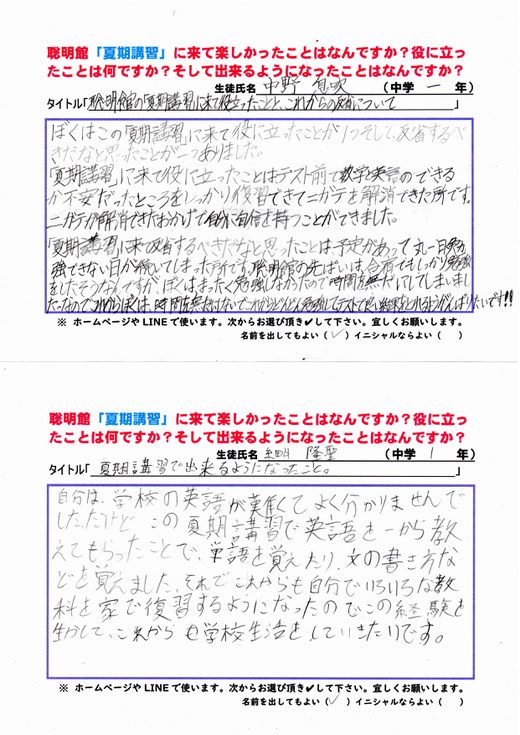 聡明館「夏期講習」に来て楽しかったことはなんですか？役に立っ
たことは何ですか？そして出来るようになったことはなんですか？
生徒氏名 中野 息吹 （中学 一 年）
タイトル「聡明館の「夏期講習」に来て役立ったことと、これからの反省について」
ぼくはこの「夏期講習」に来て役に立ったことが1つそして反省するべ
きだなと思ったことが一つありました。
「夏期講習」に来て役に立ったことはテスト前で数学と英語のできる
か不安だったところをしっかり復習できてニガテを解消できた所です。
ニガテが解消できたおかげで自分に自信を持つことができました。
「夏期講習」に来て反省するべきだなと思ったことは予定があって丸一日勉
強できない日が続いてしまった所です。聡明館の先ぱいは、合宿でもしっかり勉強
をしたそうなんですが、ぼくはまったく勉強しなかったので時間を無だにしてしまいまし
た。なのでこれからぼくは、時間を無だにせずこれからどんどん勉強してテストで良い結果をとれるようがんばりたいです!!
※ ホームページやLINEで使います。次からお選び頂き✔して下さい。宜しくお願いします。
名前を出してもよい（✓）イニシャルならよい（ ）
聡明館「夏期講習」に来て楽しかったことはなんですか？役に立っ
たことは何ですか？そして出来るようになったことはなんですか？
生徒氏名 隆聖 （中学 1 年）
タイトル「夏期講習で出来るようになったこと。」
自分は、学校の英語が難しくてよく分かりませんで
した。だけど この夏期講習で英語を一から教
えてもらったことで、単語を覚えたり、文の書き方な
どを覚えました。それでこれからも自分でいろいろな教
科を家で復習するようになったのでこの経験を
生かして、これからも学校生活をしていきたいです。
※ ホームページやLINEで使います。次からお選び頂き✔して下さい。宜しくお願いします。
名前を出してもよい（✓）イニシャルならよい（ ）